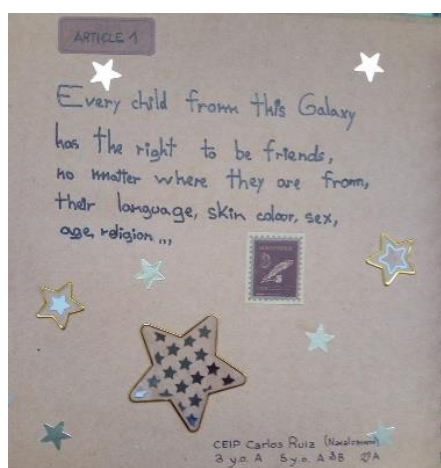 ARTICLE 1
Every child from this Galaxy
has the right to be friends,
no matter where they are from,
their language, skin colour, sex,
age, religion ...
CEIP Carlos Ruiz
3 y.o. A 5 y.o. A B